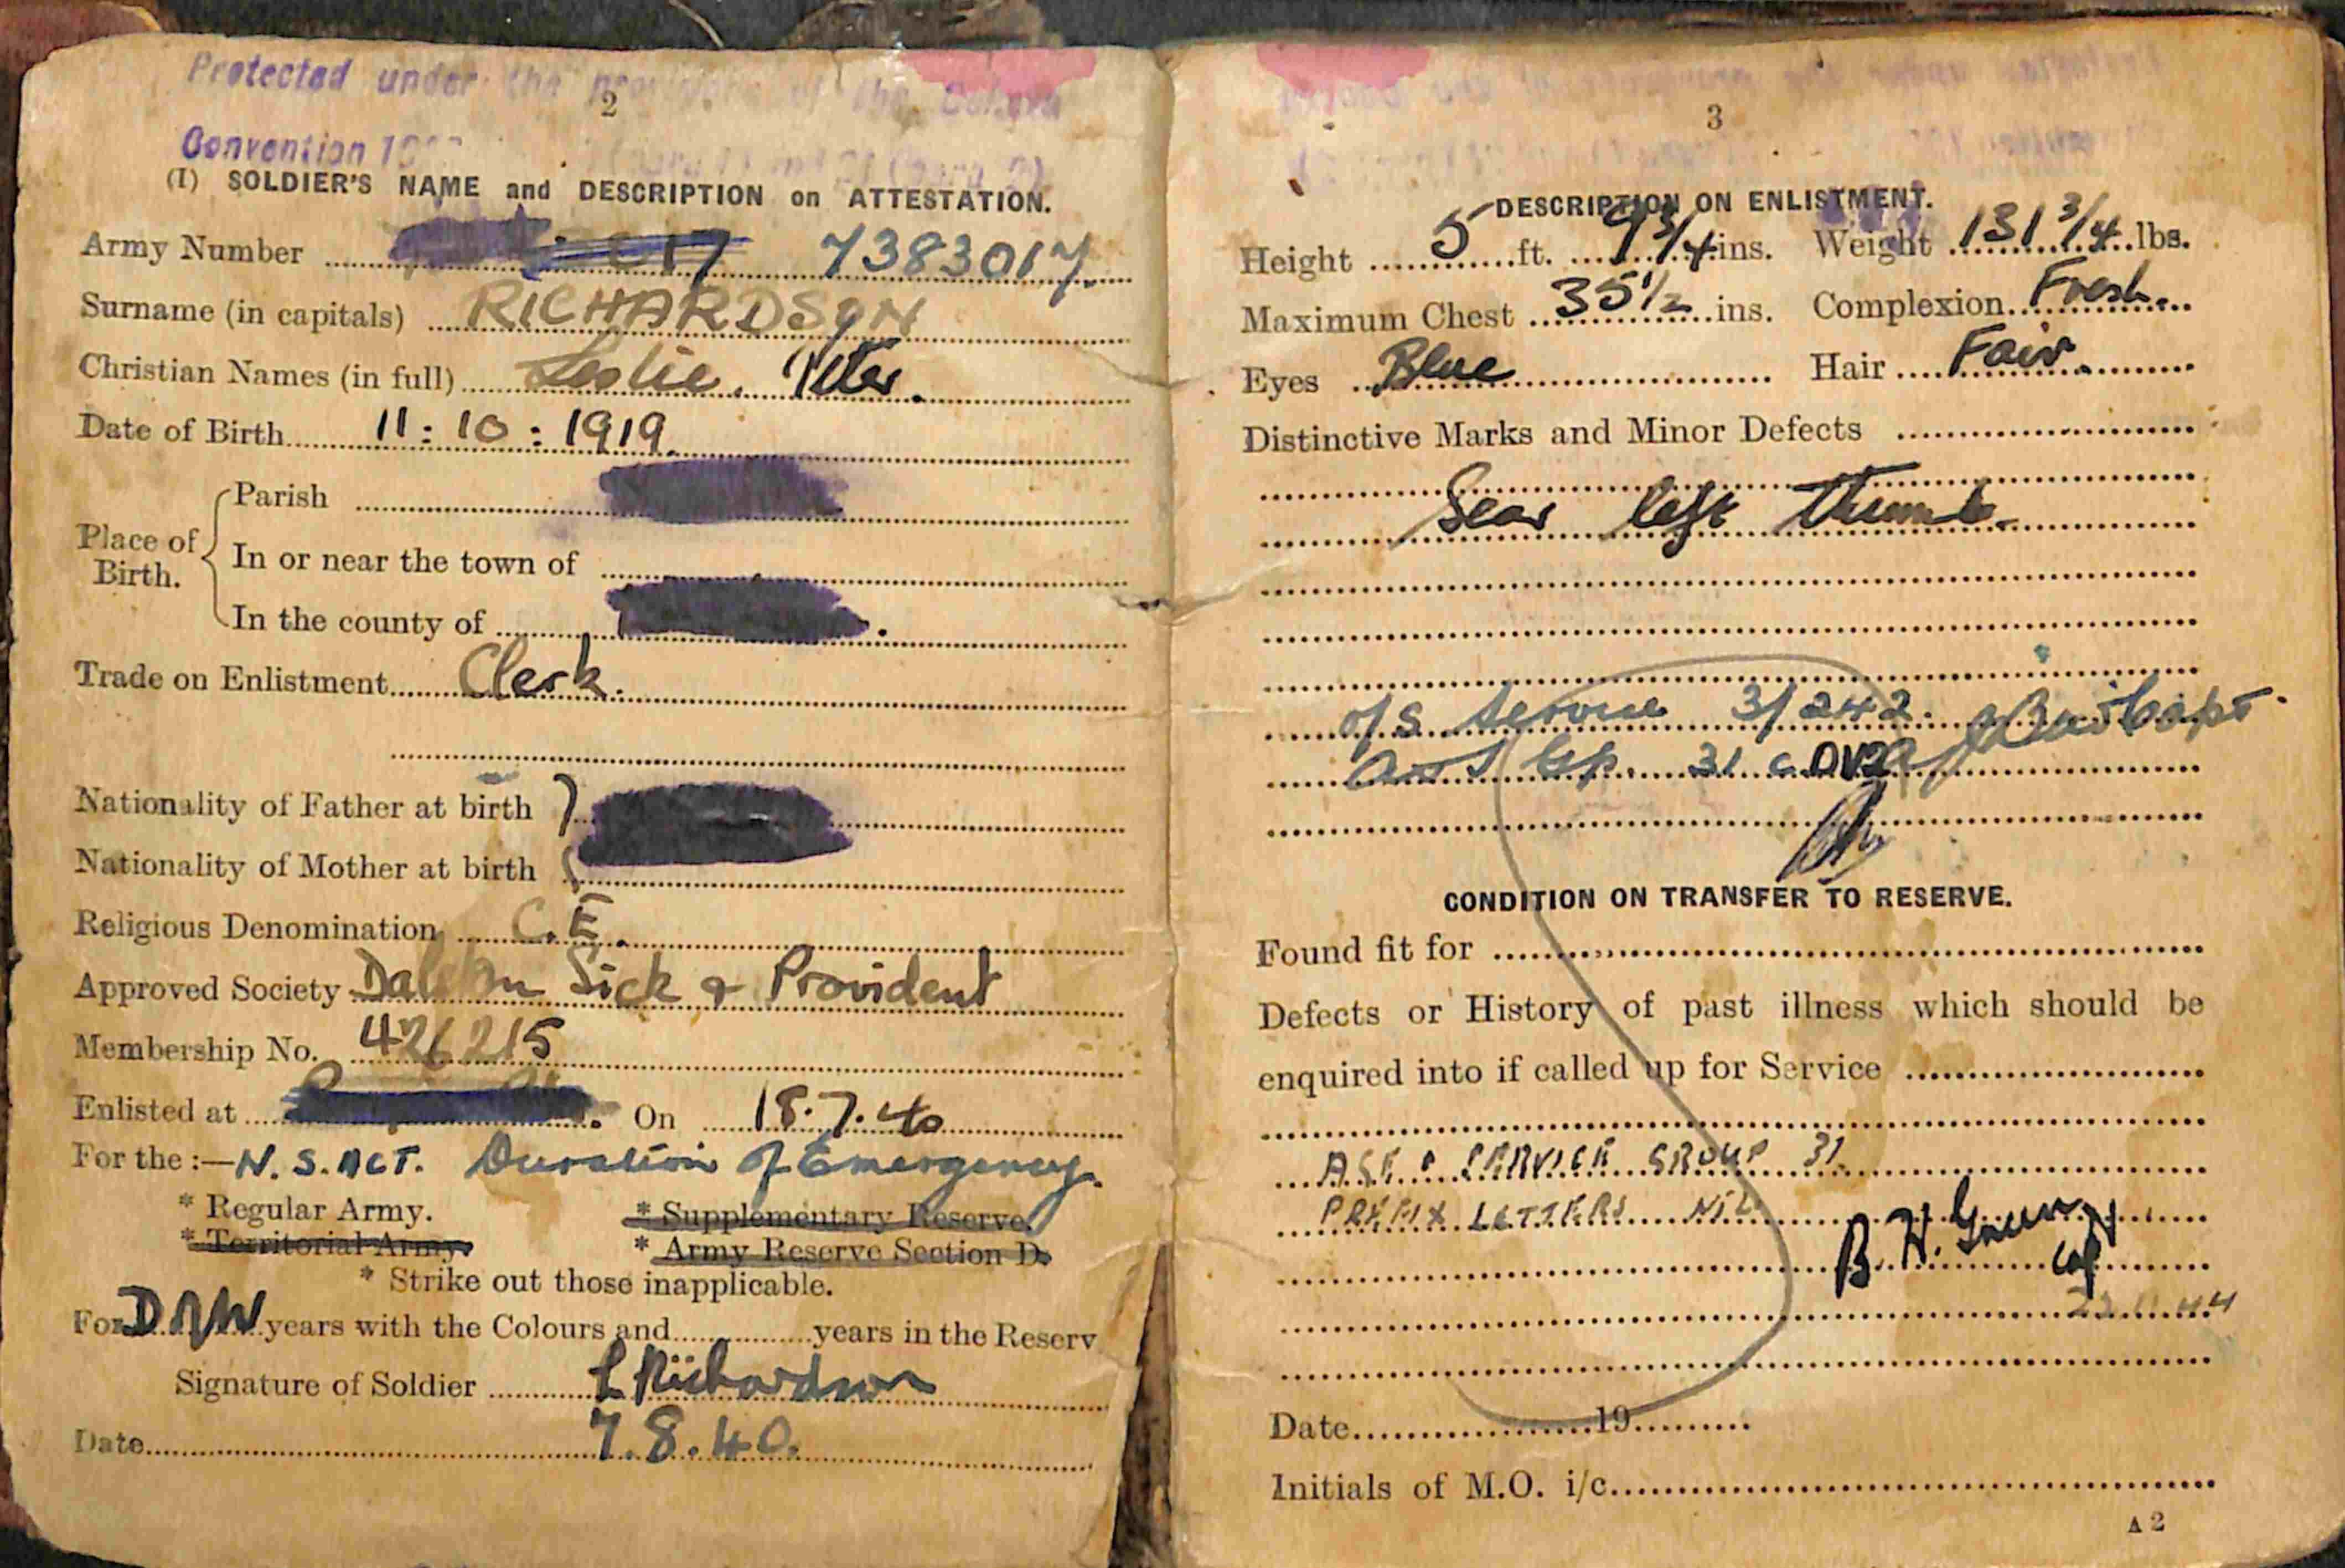 Protected under the provisions of the Geneva
2
Convention
(I) SOLDIER'S NAME and DESCRIPTION on ATTESTATION.
Army Number 7383017.
Surname (in capitals) RICHARDSON
Christian Names (in full) Leslie. Peter.
Date of Birth 11:10:1919.
Place of Birth.
Parish
In or near the town of
In the county of
Trade on Enlistment Clerk.
Nationality of Father at birth
Nationality of Mother at birth
Religious Denomination C.E.
Approved Society Dalston Sick & Provident
Membership No. 426215
Enlisted at On 18.7.40
For the :— N.S. ACT. Duration of Emergency.
* Regular Army. * Supplementary Reserve.
* Territorial Army. * Army Reserve Section D.
* Strike out those inapplicable.
For D of W years with the Colours and years in the Reserv
Signature of Soldier L Richardson
Date 7.8.40.
3
DESCRIPTION ON ENLISTMENT.
Height 5 ft. 9 3/4 ins. Weight 131 3/4 lbs.
Maximum Chest 35 1/2 ins. Complexion Fresh.
Eyes Blue Hair Fair.
Distinctive Marks and Minor Defects
Scar left thumb
O/S Service
31
CONDITION ON TRANSFER TO RESERVE.
Found fit for
Defects or History of past illness which should be
enquired into if called up for Service
AGE & SERVICE GROUP 31.
PREFIX LETTERS NIL
44
Date 19
Initials of M.O. i/c
A 2